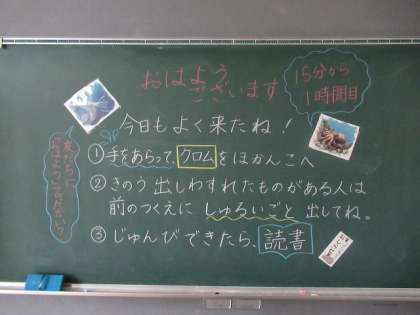 おはよう
ございます
15分から
1時間目
今日もよく来たね！
①手をあらって、クロムをほかんこへ
②きのう出しわすれたものがある人は
前のつくえにしゅるいごと出してね。
③じゅんびできたら、読書
友だちに